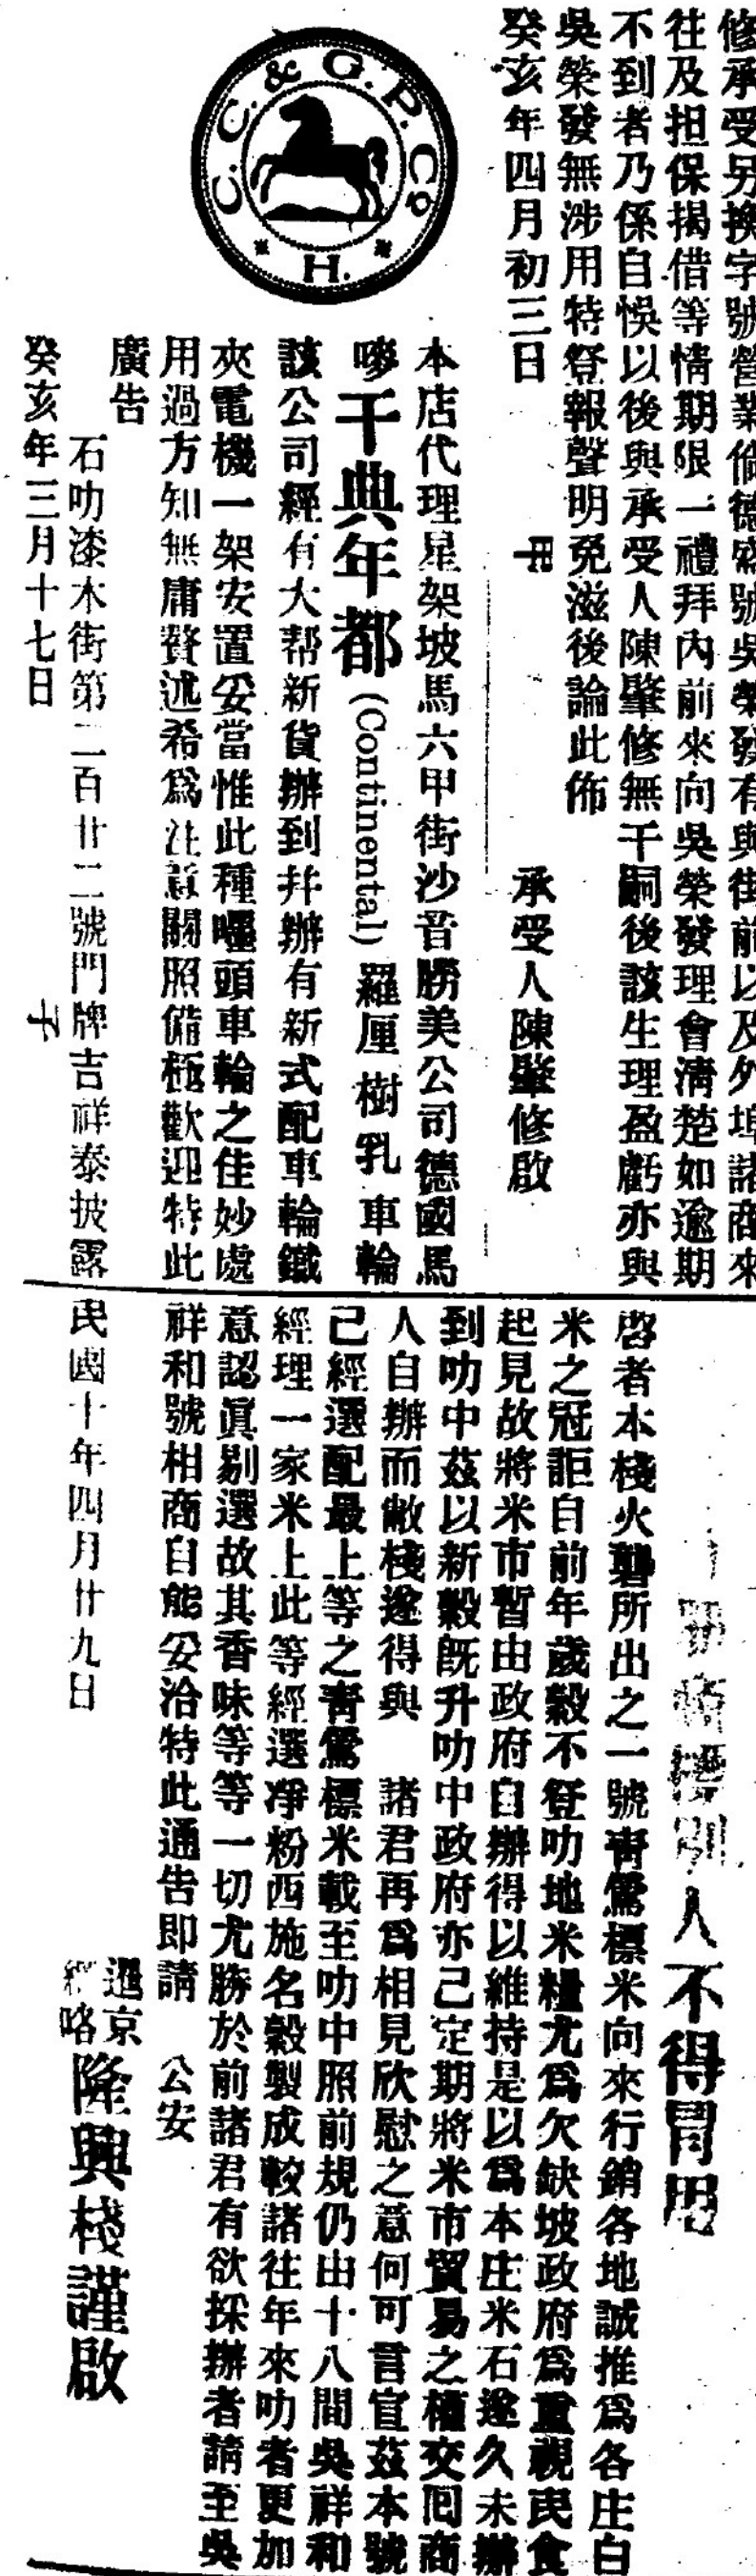 修承受另換字號營業倘德盛號吳榮發有與街前以及外埠諸商來
往及担保揭借等情期限一禮拜內前來向吳榮發理會淸楚如逾期
不到者乃係自悞以後與承受人陳肇修無干嗣後該生理盈虧亦與
吳榮發無涉用特登報聲明免滋後論此佈
癸亥年四月初三日
承受人陳肇修啟
C. C. & G. P. Co
H.
本店代理星架坡馬六甲街沙音勝美公司德國馬
嘜干典年都(Continental)羅厘樹乳車輪
該公司經有大帮新貨辦到幷辦有新式配車輪鐵
夾電機一架安置妥當惟此種頭車輪之佳妙處
用過方知無庸贅述希爲注意關照備極歡迎特此
廣告
石叻漆木街第二百廿二號門牌吉祥泰披露
癸亥年三月十七日
人不得冒用
啓者本棧火礱所出之一號靑鶯標米向來行銷各地誠推爲各庄白
米之冠詎自前年歲穀不登叻地米糧尤爲欠缺坡政府爲重視民食
起見故將米市暫由政府自辦得以維持是以爲本庄米石遂久未辦
到叻中茲以新穀旣升叻中政府亦己定期將米市貿易之權交囘商
人自辦而敝棧遂得與 諸君再爲相見欣慰之意何可言宣茲本號
己經選配最上等之靑鶯標米載至叻中照前規仍由十八間吳祥和
經理一家米上此等經選凈粉西施名穀製成較諸往年來叻者更加
意認眞剔選故其香味等等一切尤勝於前諸君有欲採辦者請至吳
祥和號相商自能妥洽特此通告即請 公安
暹京
咯
隆興棧謹啟
民國十年四月廿九日